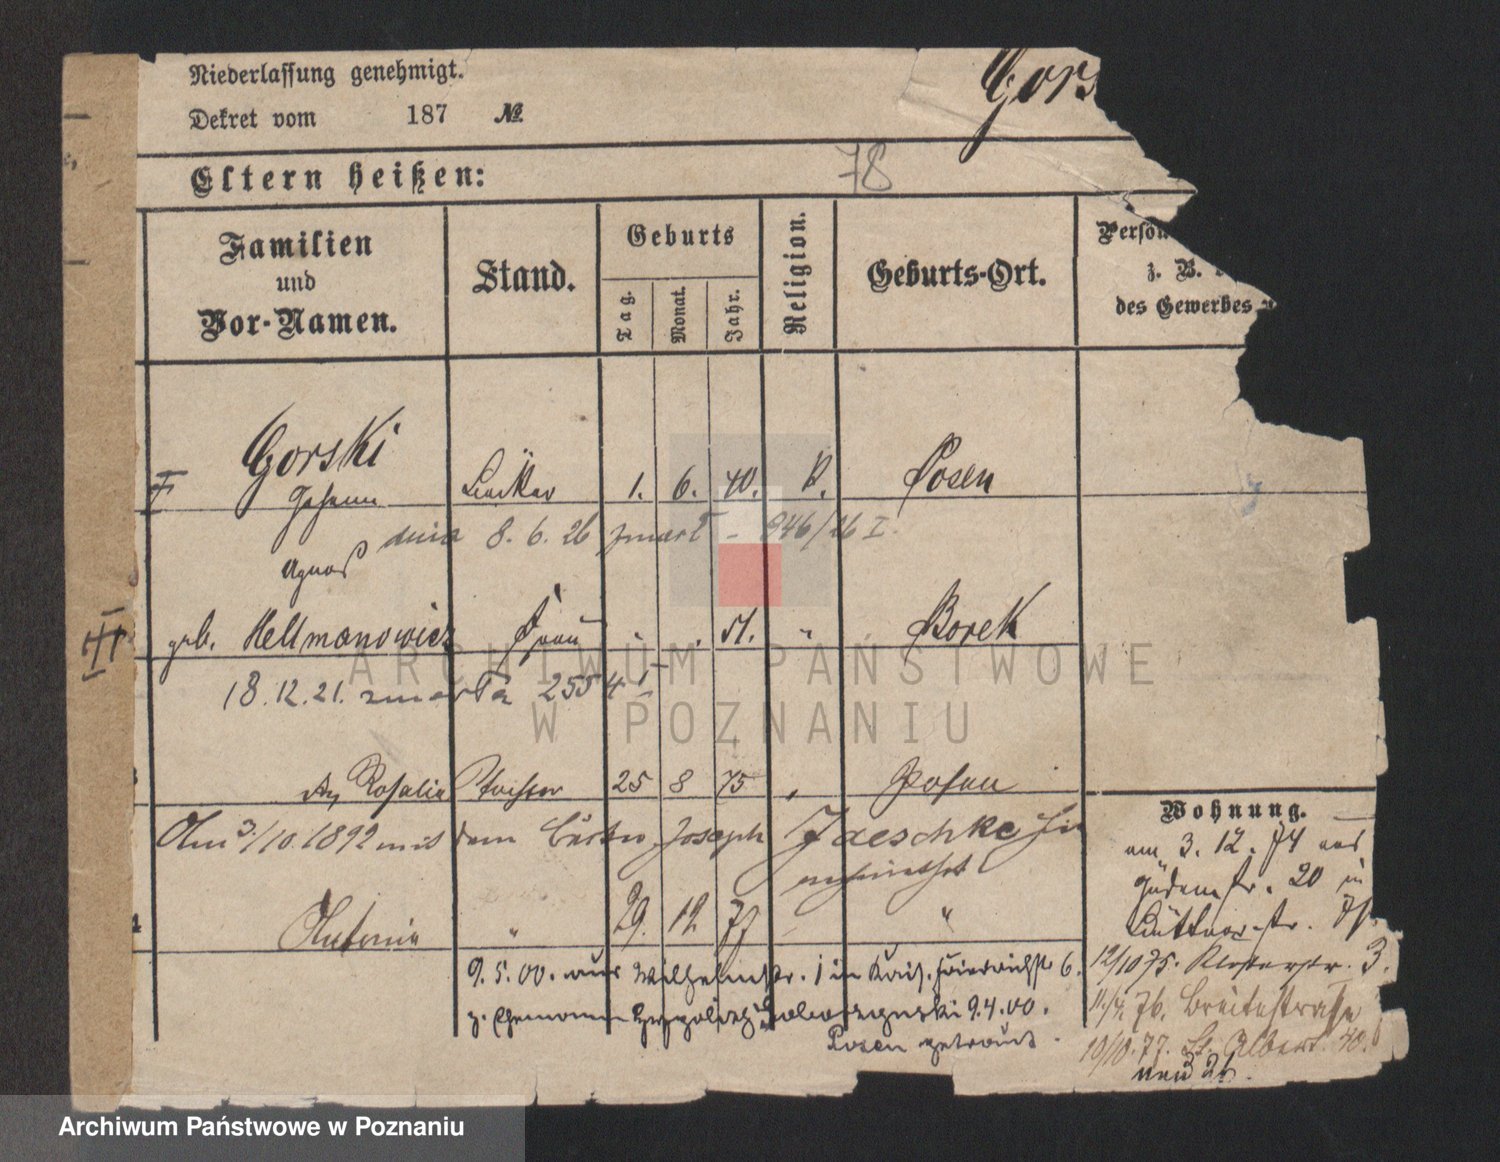 Niederlassung genehmigt.
Gors
Dekret vom 187 №
Eltern heißen:
78
Familien und Vor-Namen.
Stand.
Geburts
Tag.
Monat.
Jahr.
Religion.
Geburts-Ort.
Persön
z. B.
des Gewerbes
Gorski
Johann
1. 6. 40. K. Posen
dnia 8. 6. 26 zmarł - 946/26 I.
Agnes
geb. Hellmanowicz Frau . . 51. " Borek
18.12.21. zmarła 2554 I
Rosalia Tochter 25 8 75 Posen
Am 3/10.1892 mit dem Joseph Jaeschke
verheirathet
Antonia " 29. 12. 77 "
Wohnung.
am 3. 12. 74 aus
Judenstr. 20 in
Büttnerstr.
12/10 75. Klosterstr. 3.
11/4. 76. Breitestrasse
10/10. 77. St. Adalbert. 40.
neu 26.
9. 5. 00. aus Wilhelmstr. 1 in Kais. Friedrichstr 6.
z. Ehemann 9.4.00.
Posen getraut.
ARCHIWUM PAŃSTWOWE
W POZNANIU
Archiwum Państwowe w Poznaniu